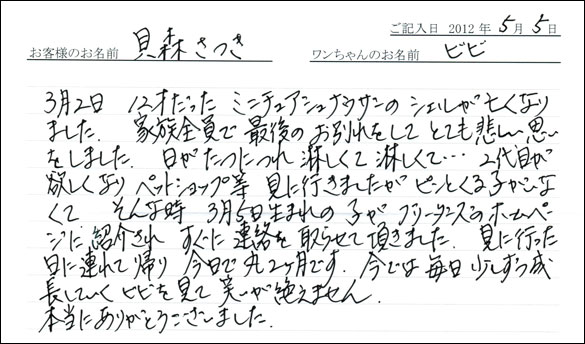 ご記入日 2012年 5月 5日
お客様のお名前 貝森さつき ワンちゃんのお名前 ビビ
3月2日 12才だった ミニチュアシュナウザーの シェルが亡くなり
ました. 家族全員で 最後の お別れをして とても悲しい思い
をしました. 日がたつにつれ 淋しくて 淋しくて… 2代目が
欲しくなり ペットショップ等 見に行きましたが ピンとくる子がいな
くて そんな時 3月5日生まれの 子が ブリーダーズのホームペー
ジに紹介され すぐに 連絡を 取らせて頂きました. 見に行った
日に連れて帰り 今日で 丸2ヶ月です. 今では 毎日 少しずつ成
長していく ビビを見て 笑いが絶えません.
本当にありがとうございました.